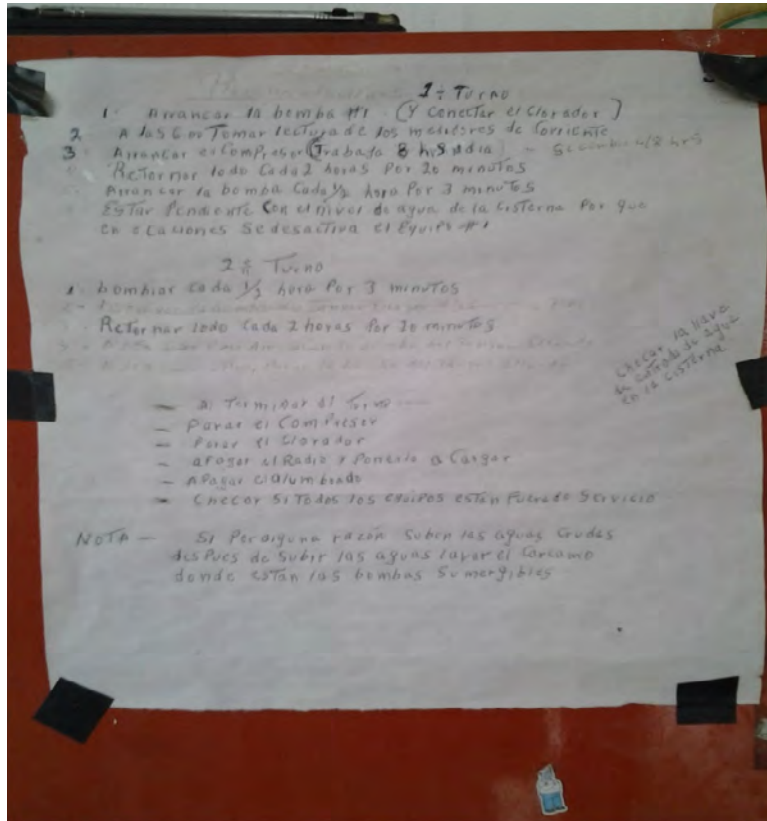 1er Turno
1. Arrancar la bomba #1 (Y Conectar el Clorador)
2 A las 6 Tomar lectura de los medidores de Corriente
3 Arrancar el Compresor (Trabaja 8 hrs día)
Retornar lodo Cada 2 horas Por 20 minutos
Arrancar la bomba Cada 1/2 hora Por 3 minutos
Estar Pendiente Con el nivel de agua de la Cisterna Por que
en ocaciones Se desactiva el Equipo #1
2do Turno
1 bombiar Cada 1/2 hora Por 3 minutos
Retornar lodo Cada 2 horas Por 20 minutos
Checar la llave
de entrada de agua
en la Cisterna
— Al Terminar el Turno —
— Parar el Compresor
— Parar el Clorador
— aPagar el Radio y Ponerlo a Cargar
— APagar el alumbrado
— Checar Si Todos los equipos estan Fuera de Servicio
NOTA — Si Por alguna razón Suben las aguas Crudas
después de Subir las aguas lavar el Carcamo
donde estan las bombas Sumergibles